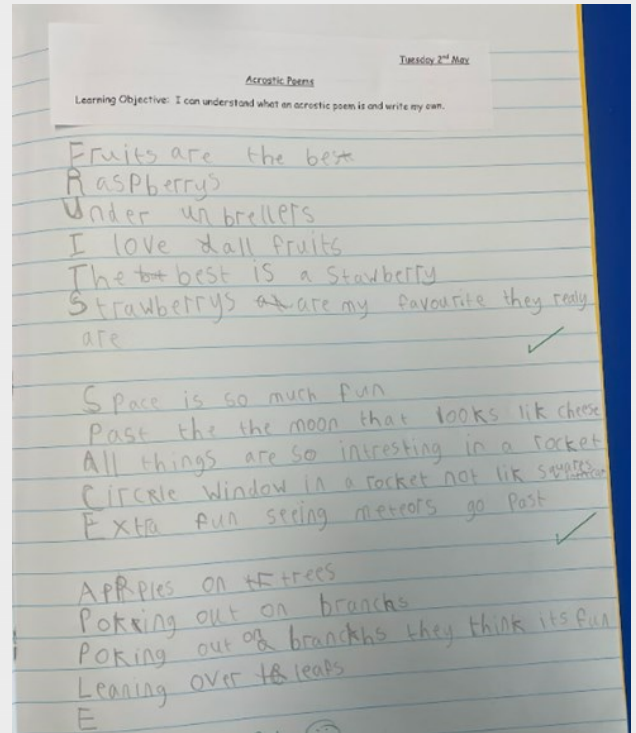 Tuesday 2nd May
Acrostic Poems
Learning Objective: I can understand what an acrostic poem is and write my own.
Fruits are the best
Raspberrys
Under unbrellers
I love all fruits
The best is a Stawberry
Strawberrys are my favourite they realy
are
Space is so much fun
Past the the moon that looks lik cheese
All things are so intresting in a rocket
Circle window in a rocket not lik squares
Extra fun seeing meteors go Past
Apples on trees
Poking out on branchs
Poking out on branchhs they think its fun
Leaning over leafs
E